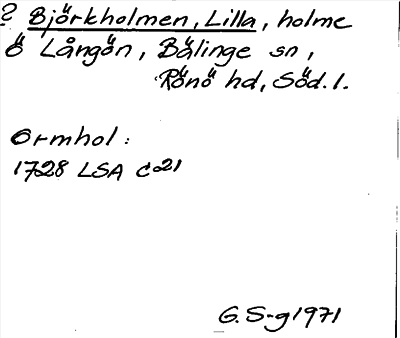 ? Björkholmen, Lilla, holme
Ö Långön, Bälinge sn,
Rönö hd, Söd. l.
Ormhol:
1728 LSA C21
G. S-g 1971